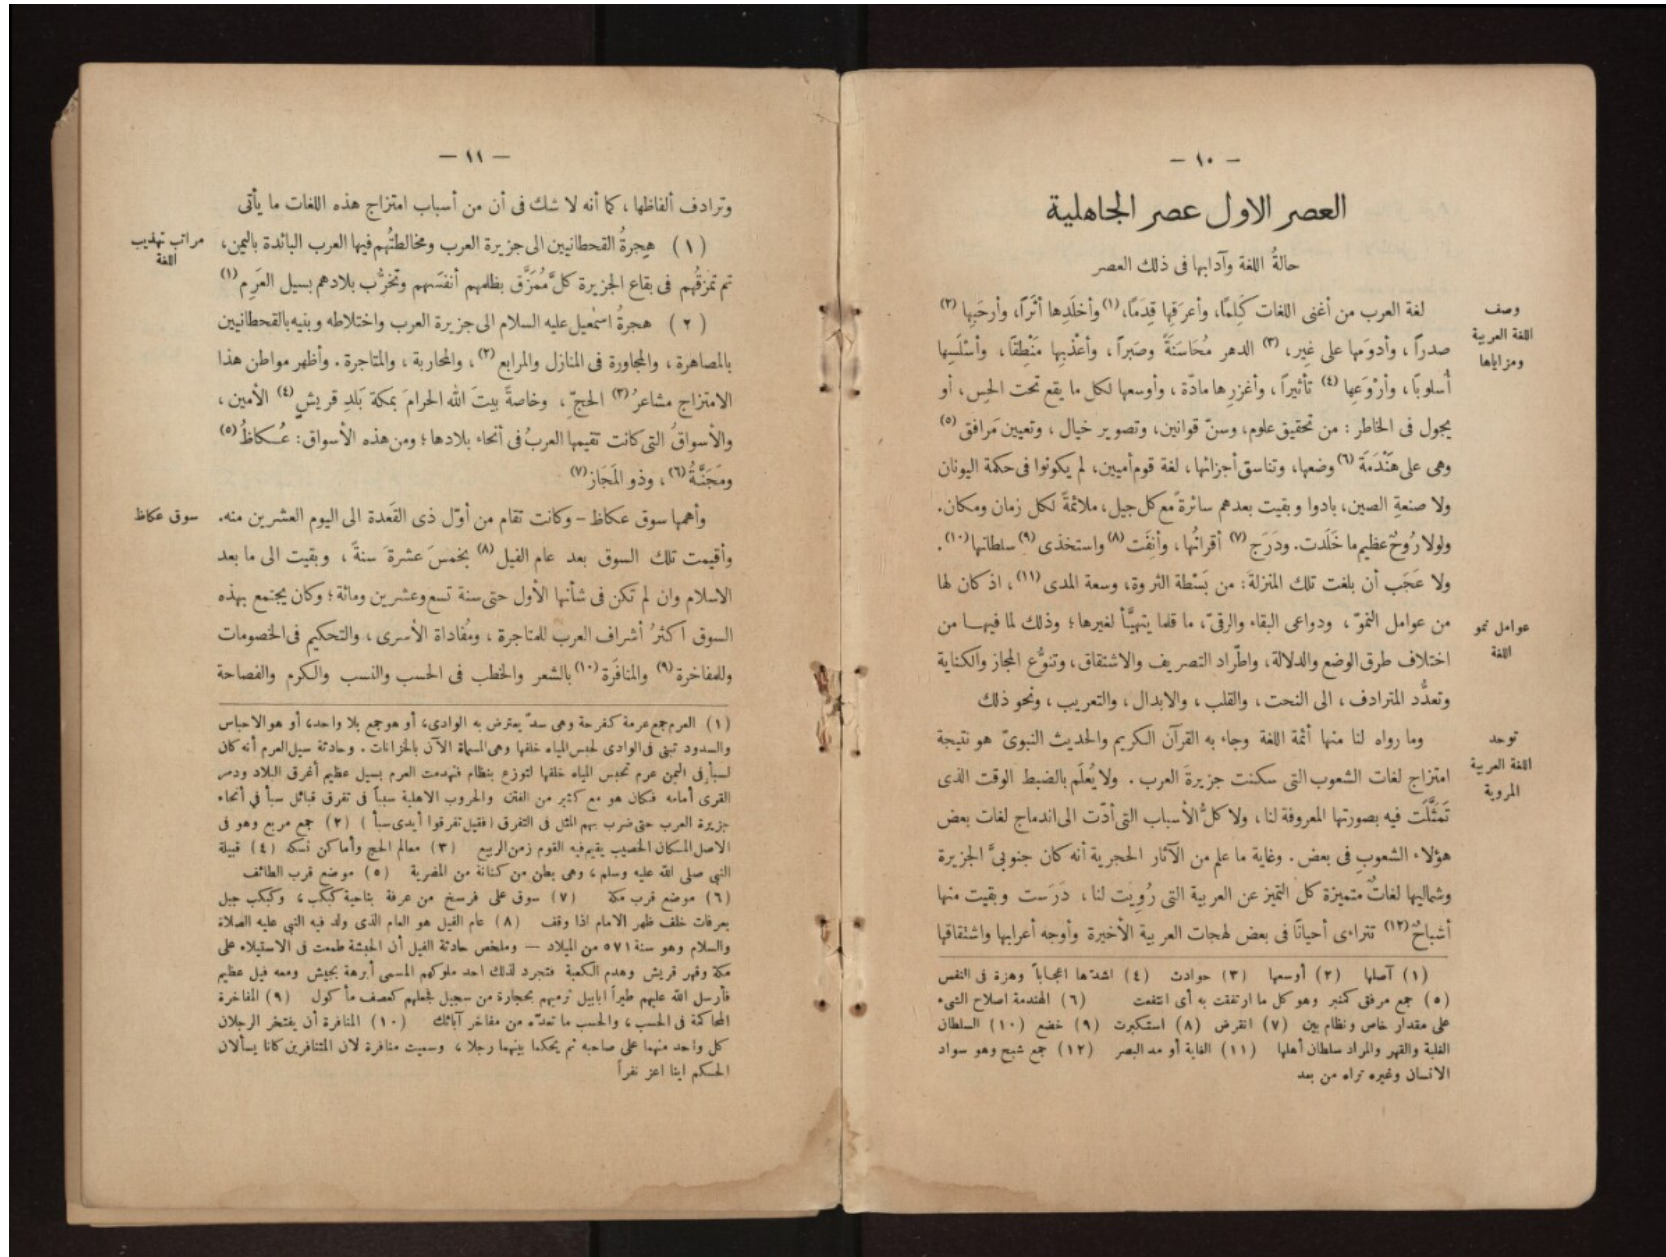 — ١٠ —
العصر الاول عصر الجاهلية
حالةُ اللغة وآدابها فى ذلك العصر
وصف
اللغة العربية
ومزاياها
لغة العرب من أغنى اللغات كَلِمًا، وأعرَقِها قِدَمًا، (١) وأخلَدِها أثَرًا، وأرحَبِها (٢)
صدراً، وأدوَمها على غِيرِ، (٣) الدهر مُحَاسَنَةً وصَبراً، وأعْذَبِها مَنْطِقًا، وأسْلَسِها
أُسلوبًا، وأرْوَعِها (٤) تأثيراً، وأغزرِها مادّة، وأوسعها لكل ما يقع تحت الحِس، أو
يجول فى الخاطر : من تحقيق علوم، وسنّ قوانين، وتصوير خيال، وتعيين مَرافق (٥)
وهى على هَنْدَمَة (٦) وضعها، وتناسق أجزائها، لغة قوم أميين، لم يكونوا فى حكمة اليونان
ولا صنعةِ الصين، بادوا وبقيت بعدهم سائرةً مع كل جيل، ملائمةً لكل زمان ومكان.
ولولا رُوحٌ عظيم ما خَلَدت. ودَرَج (٧) أقرانُها، وأنِفَت (٨) واستخذى (٩) سلطانها (١٠).
ولا عَجَب أن بلغت تلك المنزلةَ : من بَسْطة الثروة، وسعة المدى (١١)، اذ كان لها
عوامل نمو
اللغة
من عوامل النموّ، ودواعى البقاء والرقىّ، ما قلما يتهيَّأ لغيرها؛ وذلك لما فيهـا من
اختلاف طرق الوضع والدلالة، واطّراد التصريف والاشتقاق، وتنوُّع المجاز والكناية
وتعدُّد المترادف، الى النحت، والقلب، والابدال، والتعريب، ونحو ذلك
توحد
اللغة العربية
المروية
وما رواه لنا منها أئمة اللغة وجاء به القرآن الكريم والحديث النبوىّ هو نتيجة
امتزاج لغات الشعوب التى سكنت جزيرةَ العرب . ولا يُعلَم بالضبط الوقت الذى
تَمَثَّلَت فيه بصورتها المعروفة لنا، ولا كلُّ الأسباب التى أدّت الى اندماج لغات بعض
هؤلاء الشعوبِ فى بعض . وغاية ما علم من الآثار الحجرية أنه كان جنوبىَّ الجزيرة
وشماليها لغاتٌ متميزة كل التميز عن العربية التى رُويَت لنا، دَرَست وبقيت منها
أشباحٌ (١٢) تتراءى أحيانًا فى بعض لهجات العربية الأخيرة وأوجه أعرابها واشتقاقها
(١) آصلها (٢) أوسعها (٣) حوادث (٤) اشدّها اعجاباً وهزة فى النفس
(٥) جمع مرفق كمنبر وهو كل ما ارتفقت به أى انتفعت (٦) الهندمة اصلاح الشىء
على مقدار خاص ونظام بين (٧) انقرض (٨) استكبرت (٩) خضع (١٠) السلطان
الغلبة والقهر والمراد سلطان أهلها (١١) الغاية أو مد البصر (١٢) جمع شبح وهو سواد
الانسان وغيره تراه من بعد
— ١١ —
وترادف ألفاظها، كما أنه لا شك فى أن من أسباب امتزاج هذه اللغات ما يأتى
مراتب تهذيب
اللغة
(١) هِجرةُ القحطانيين الى جزيرة العرب ومخالطتُهم فيها العرب البائدة باليمن،
ثم تمزقُهم فى بقاع الجزيرة كلَّ مُمَزَّق بظلمهم أنفسَهم وتخرُّب بلادهم بسيل العَرِم (١)
(٢) هجرةُ اسمٰعيل عليه السلام الى جزيرة العرب واختلاطه وبنيه بالقحطانيين
بالمصاهرة، والمجاورة فى المنازل والمرابع (٢)، والمحاربة، والمتاجرة . وأظهر مواطن هذا
الامتزاج مشاعرُ (٣) الحجّ، وخاصةً بيتَ الله الحرامَ بمكة بَلدِ قريش (٤) الأمين،
والأسواقُ التى كانت تقيمها العربُ فى أنحاء بلادها؛ ومن هذه الأسواق : عُـكاظُ (٥)
ومَجَنَّةُ (٦)، وذو المَجَاز (٧)
سوق عكاظ
وأهمها سوق عكاظ – وكانت تقام من أوّل ذى القَعدة الى اليوم العشرين منه.
وأقيمت تلك السوق بعد عام الفيل (٨) بخمسَ عشرةَ سنةً، وبقيت الى ما بعد
الاسلام وان لم تكن فى شأنها الأول حتى سنة تسع وعشرين ومائة؛ وكان يجتمع بهذه
السوق أكثرُ أشراف العرب للمتاجرة، ومُفاداة الأسرى، والتحكيم فى الخصومات
وللمفاخرة (٩) والمنافَرة (١٠) بالشعر والخطب فى الحسب والنسب والكرم والفصاحة
(١) العرم جمع عرمة كفرحة وهى سدّ يعترض به الوادى، أو هو جمع بلا واحد، أو هو الاحباس
والسدود تبنى فى الوادى لحبس المياه خلفها وهى المسماة الآن بالخزانات . وحادثة سيل العرم أنه كان
لسبأ فى اليمن عرم تحبس المياه خلفها لتوزع بنظام فتهدمت العرم بسيل عظيم أغرق البلاد ودمر
القرى أمامه فكان هو مع كثير من الفتن والحروب الاهلية سبباً فى تفرق قبائل سبأ في أنحاء
جزيرة العرب حتى ضرب بهم المثل فى التفرق (فقيل تفرقوا أيدى سبأ ) (٢) جمع مربع وهو فى
الاصل المكان الخصيب يقيم فيه القوم زمن الربيع (٣) معالم الحج وأماكن نسكه (٤) قبيلة
النبي صلى الله عليه وسلم، وهى بطن من كنانة من المضرية (٥) موضع قرب الطائف
(٦) موضع قرب مكة (٧) سوق على فرسخ من عرفة بناحية كبكب، وكبكب جبل
بعرفات خلف ظهر الامام اذا وقف (٨) عام الفيل هو العام الذى ولد فيه النبي عليه الصلاة
والسلام وهو سنة ٥٧١ من الميلاد — وملخص حادثة الفيل أن الحبشة طمعت فى الاستيلاء على
مكة وقهر قريش وهدم الكعبة فتجرد لذلك احد ملوكهم المسمى أبرهة بجيش ومعه فيل عظيم
فأرسل الله عليهم طيراً ابابيل ترميهم بحجارة من سجيل فجعلهم كعصف مأكول (٩) المفاخرة
المحاكمة فى الحسب، والحسب ما تعدّه من مفاخر آبائك (١٠) المنافرة أن يفتخر الرجلان
كل واحد منهما على صاحبه ثم يحكما بينهما رجلا، وسميت منافرة لان المتنافرين كانا يسألان
الحكم اينا اعز نفراً